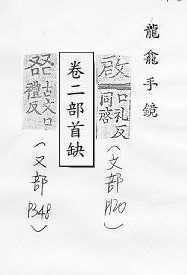 龍龕手鏡
啟
口礼反
同啓
（文部 P120）
卷二部首缺
古文口
禮反
（又部 P348）